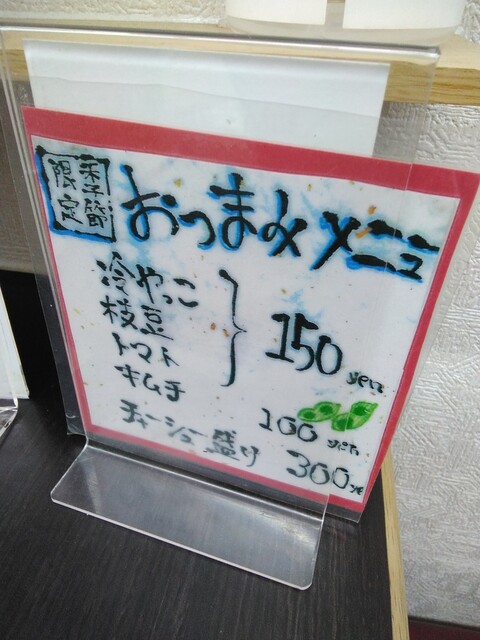 季節
限定
おつまみメニュー
冷やっこ
枝豆
トマト
150 yen
キムチ 100 yen
チャーシュー盛り 300 ye